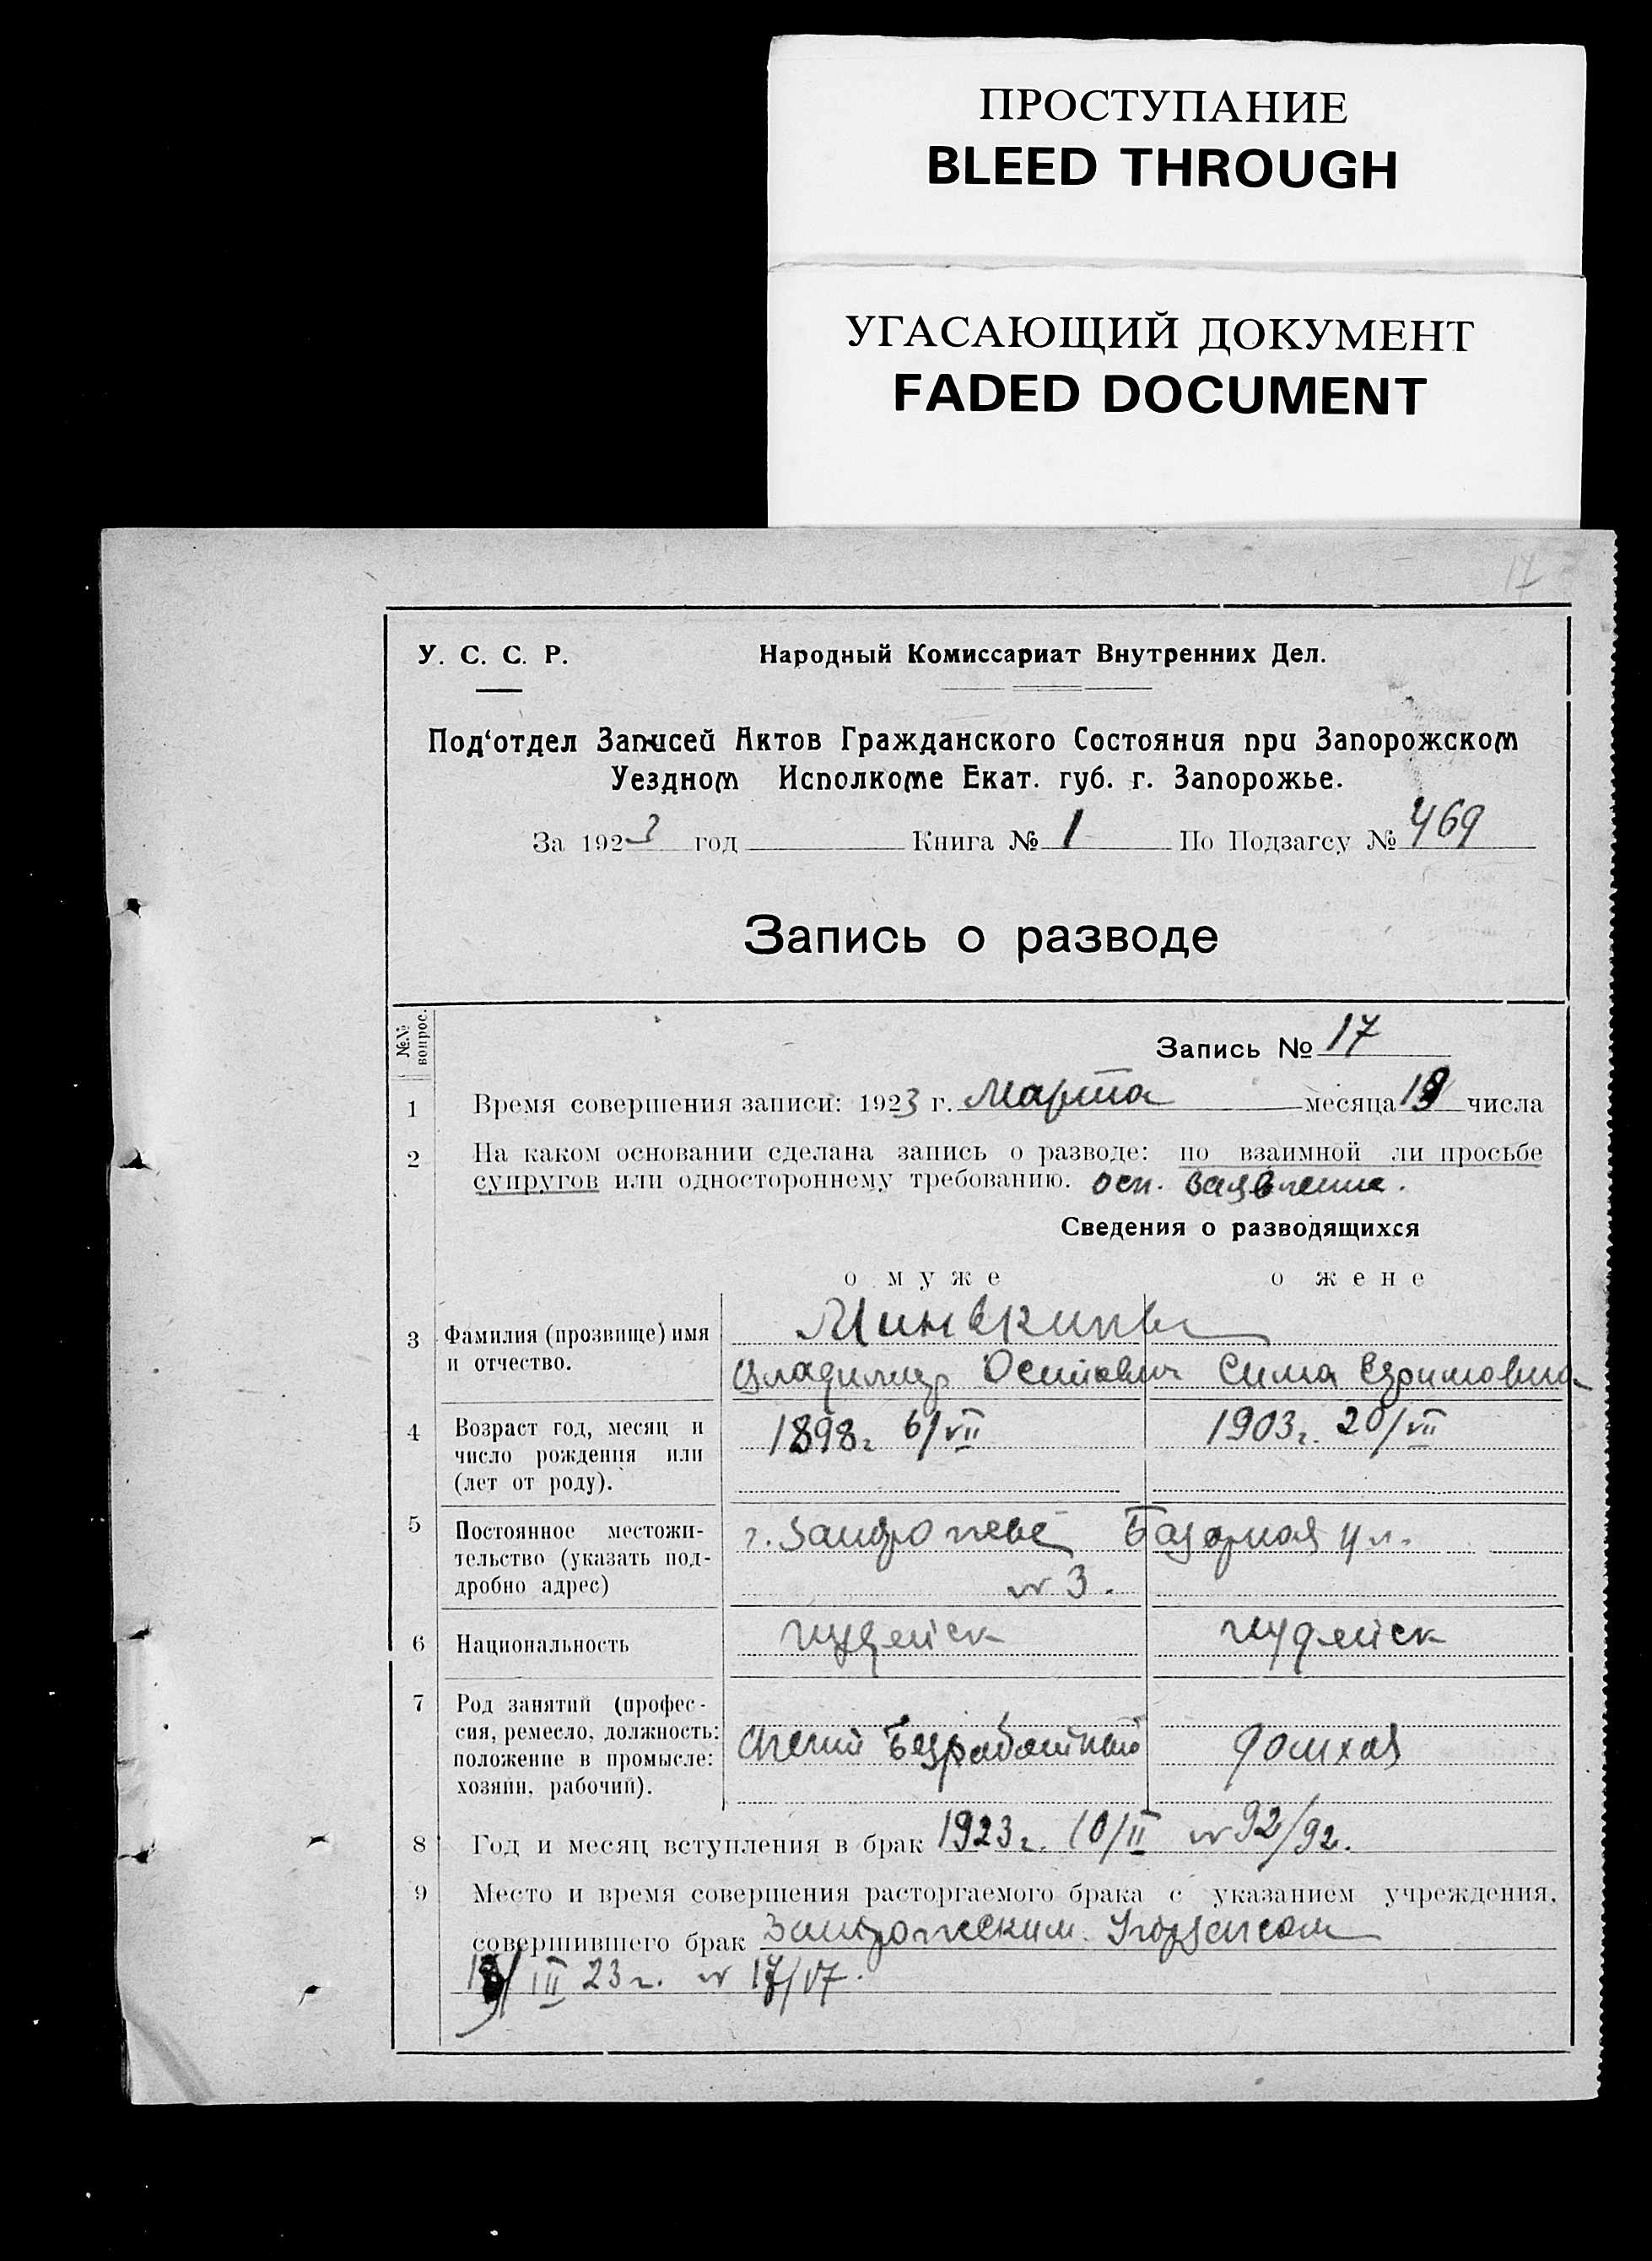 ПРОСТУПАНИЕ
BLEED THROUGH
УГАСАЮЩИЙ ДОКУМЕНТ
FADED DOCUMENT
17
У. С. С. Р. Народный Комиссариат Внутренних Дел.
Под‘отдел Записей Актов Гражданского Состояния при Запорожском
Уездном Исполкоме Екат. губ. г. Запорожье.
За 1923 год Книга № 1 По Подзагсу № 469
Запись о разводе
№№ вопрос.
Запись № 17
1 Время совершения записи: 1923 г. Марта месяца числа
2 На каком основании сделана запись о разводе: по взаимной ли просьбе
супругов или одностороннему требованию. осн. заявление.
Сведения о разводящихся
о муже о жене
3 Фамилия (прозвище) имя
и отчество.
Минькины
Владимир Осипович Сима Ефимовна
4 Возраст год, месяц и
число рождения или
(лет от роду).
1898г. 6/VII 1903г. 20/VII
5 Постоянное местожи-
тельство (указать под-
дробно адрес)
г. Запорожье Базарная ул.
№ 3.
6 Национальность иудейск иудейск
7 Род занятий (профес-
сия, ремесло, должность:
положение в промысле:
хозяин, рабочий).
Безработный домхоз
8 Год и месяц вступления в брак 1923г. 10/II № 92/92.
9 Место и время совершения расторгаемого брака с указанием учреждения,
совершившего брак Запорожским
III 23г. № 17/17.